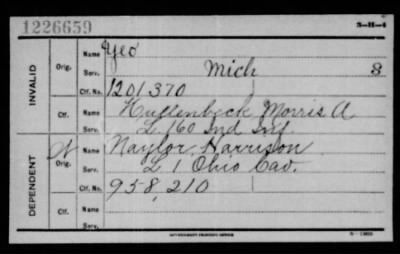 1226659
3-H-4
INVALID
Orig.
Name Yeo
Serv. Mich 8
Ctf. No. 1201370
Ctf.
Name Hullenbeck Morris A
Serv. L 160 Ind Inf.
DEPENDENT
N
Orig.
Name Naylor, Harrison
Serv. L 1 Ohio Cav.
Ctf. No. 958,210
Ctf.
Name
Serv.
GOVERNMENT PRINTING OFFICE